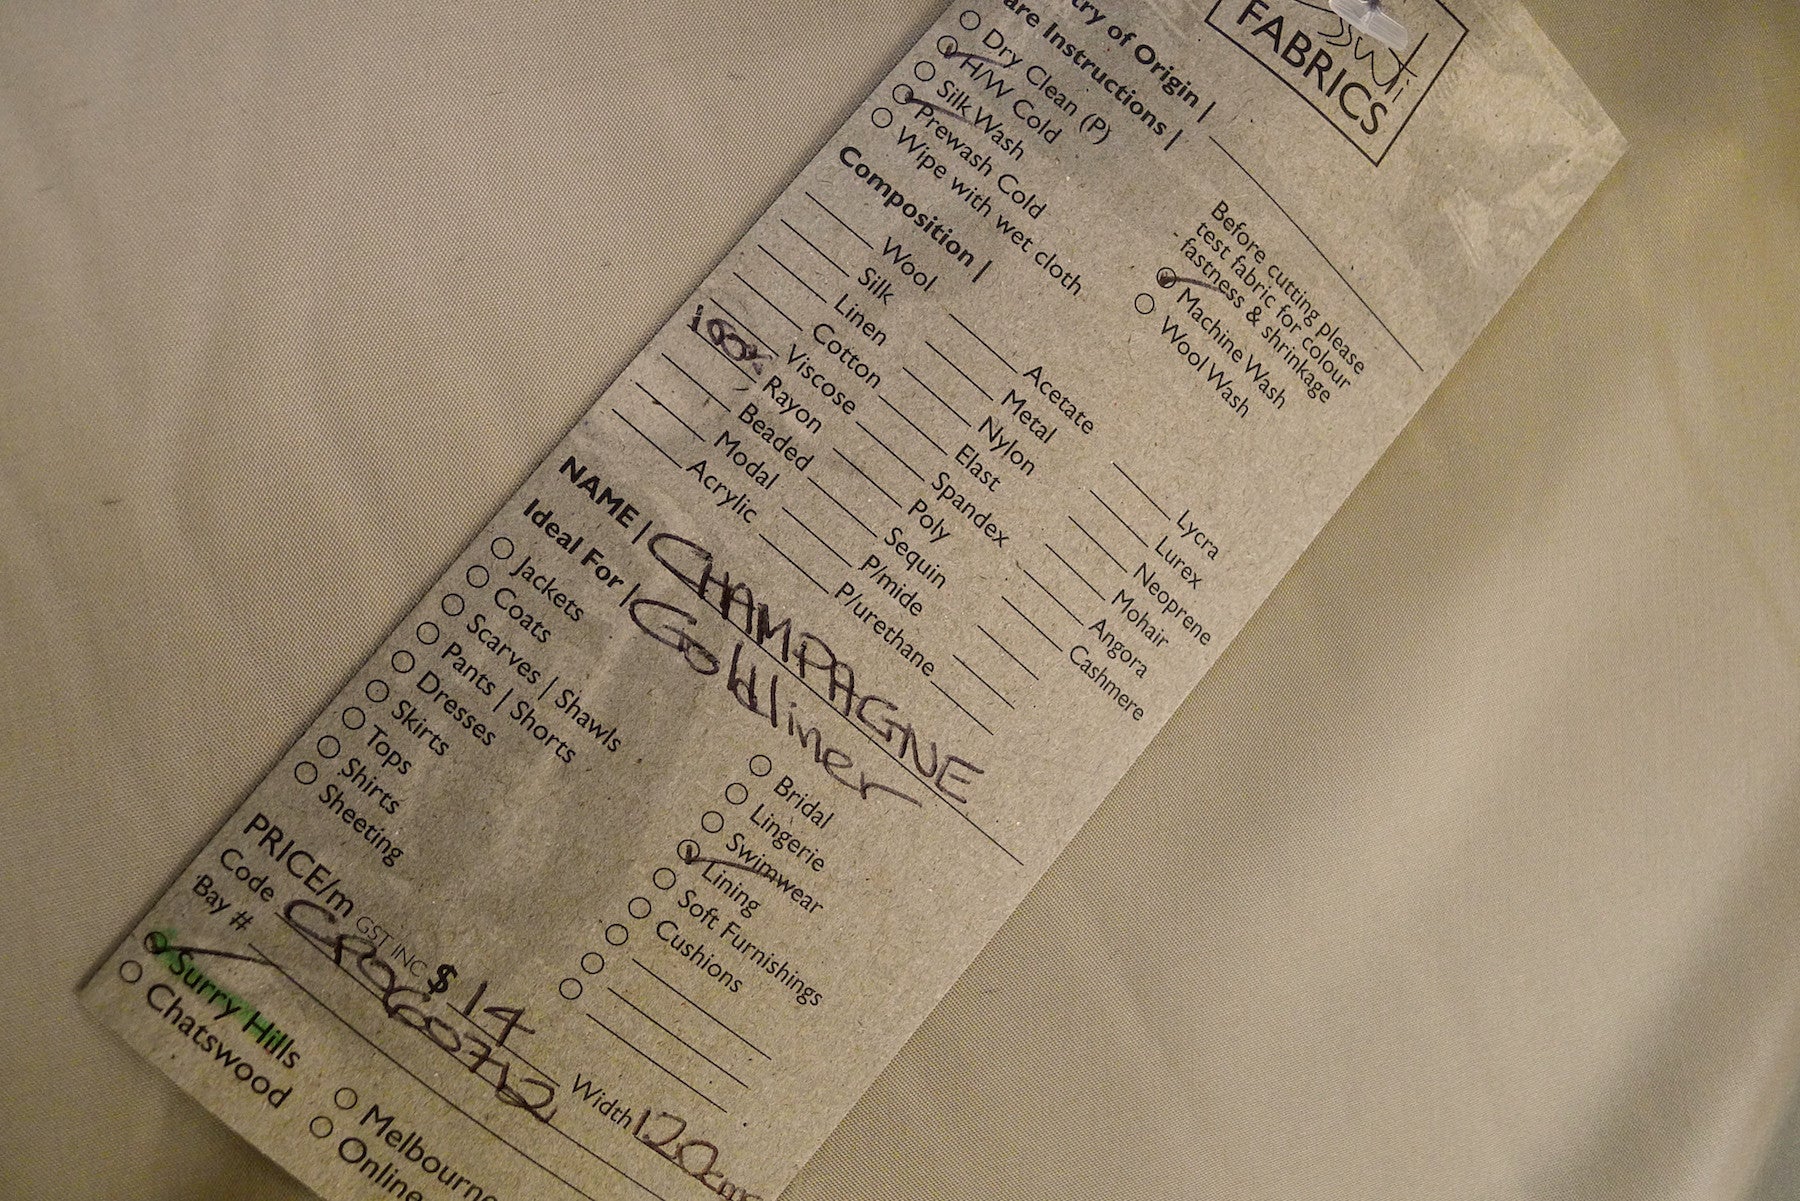 FABRICS
try of Origin |
are Instructions |
Dry Clean (P)
H/W Cold
Silk Wash
Prewash Cold
Wipe with wet cloth
Before cutting please
test fabric for colour
fastness & shrinkage
Machine Wash
Wool Wash
Composition |
Wool
Silk
Linen
Cotton
Viscose
100% Rayon
Beaded
Modal
Acrylic
Acetate
Metal
Nylon
Elast
Spandex
Poly
Sequin
P/mide
P/urethane
Lycra
Lurex
Neoprene
Mohair
Angora
Cashmere
NAME | CHAMPAGNE
Ideal For | Gold liner
Jackets
Coats
Scarves | Shawls
Pants | Shorts
Dresses
Skirts
Tops
Shirts
Sheeting
Bridal
Lingerie
Swimwear
Lining
Soft Furnishings
Cushions
PRICE/m GST INC $ 14
Code Width 120cm
Bay #
Surry Hills
Chatswood
Melbourne
Online